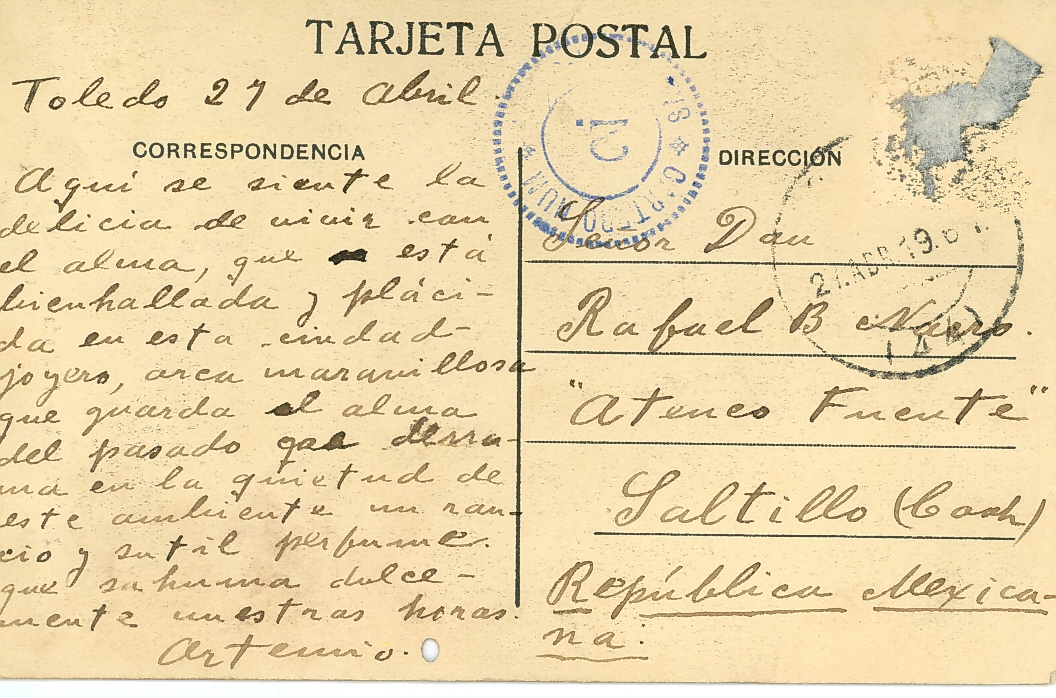 TARJETA POSTAL
Toledo 27 de Abril.
CORRESPONDENCIA
Aquí se siente la
delicia de vivir con
el alma, que está
bienhallada y pláci-
da en esta ciudad
joyero, arca maravillosa
que guarda el alma
del pasado que derra-
ma en la quietud de
este ambiente un ran-
cio y sutil perfume.
que sahuma dulce-
mente nuestras horas.
Artemio.
DIRECCIÓN
Señor Don
Rafael B
"Ateneo Fuente"
Saltillo (Coah)
República Mexica-
na.
CARTERO NUM
12
ABR 19
(44)